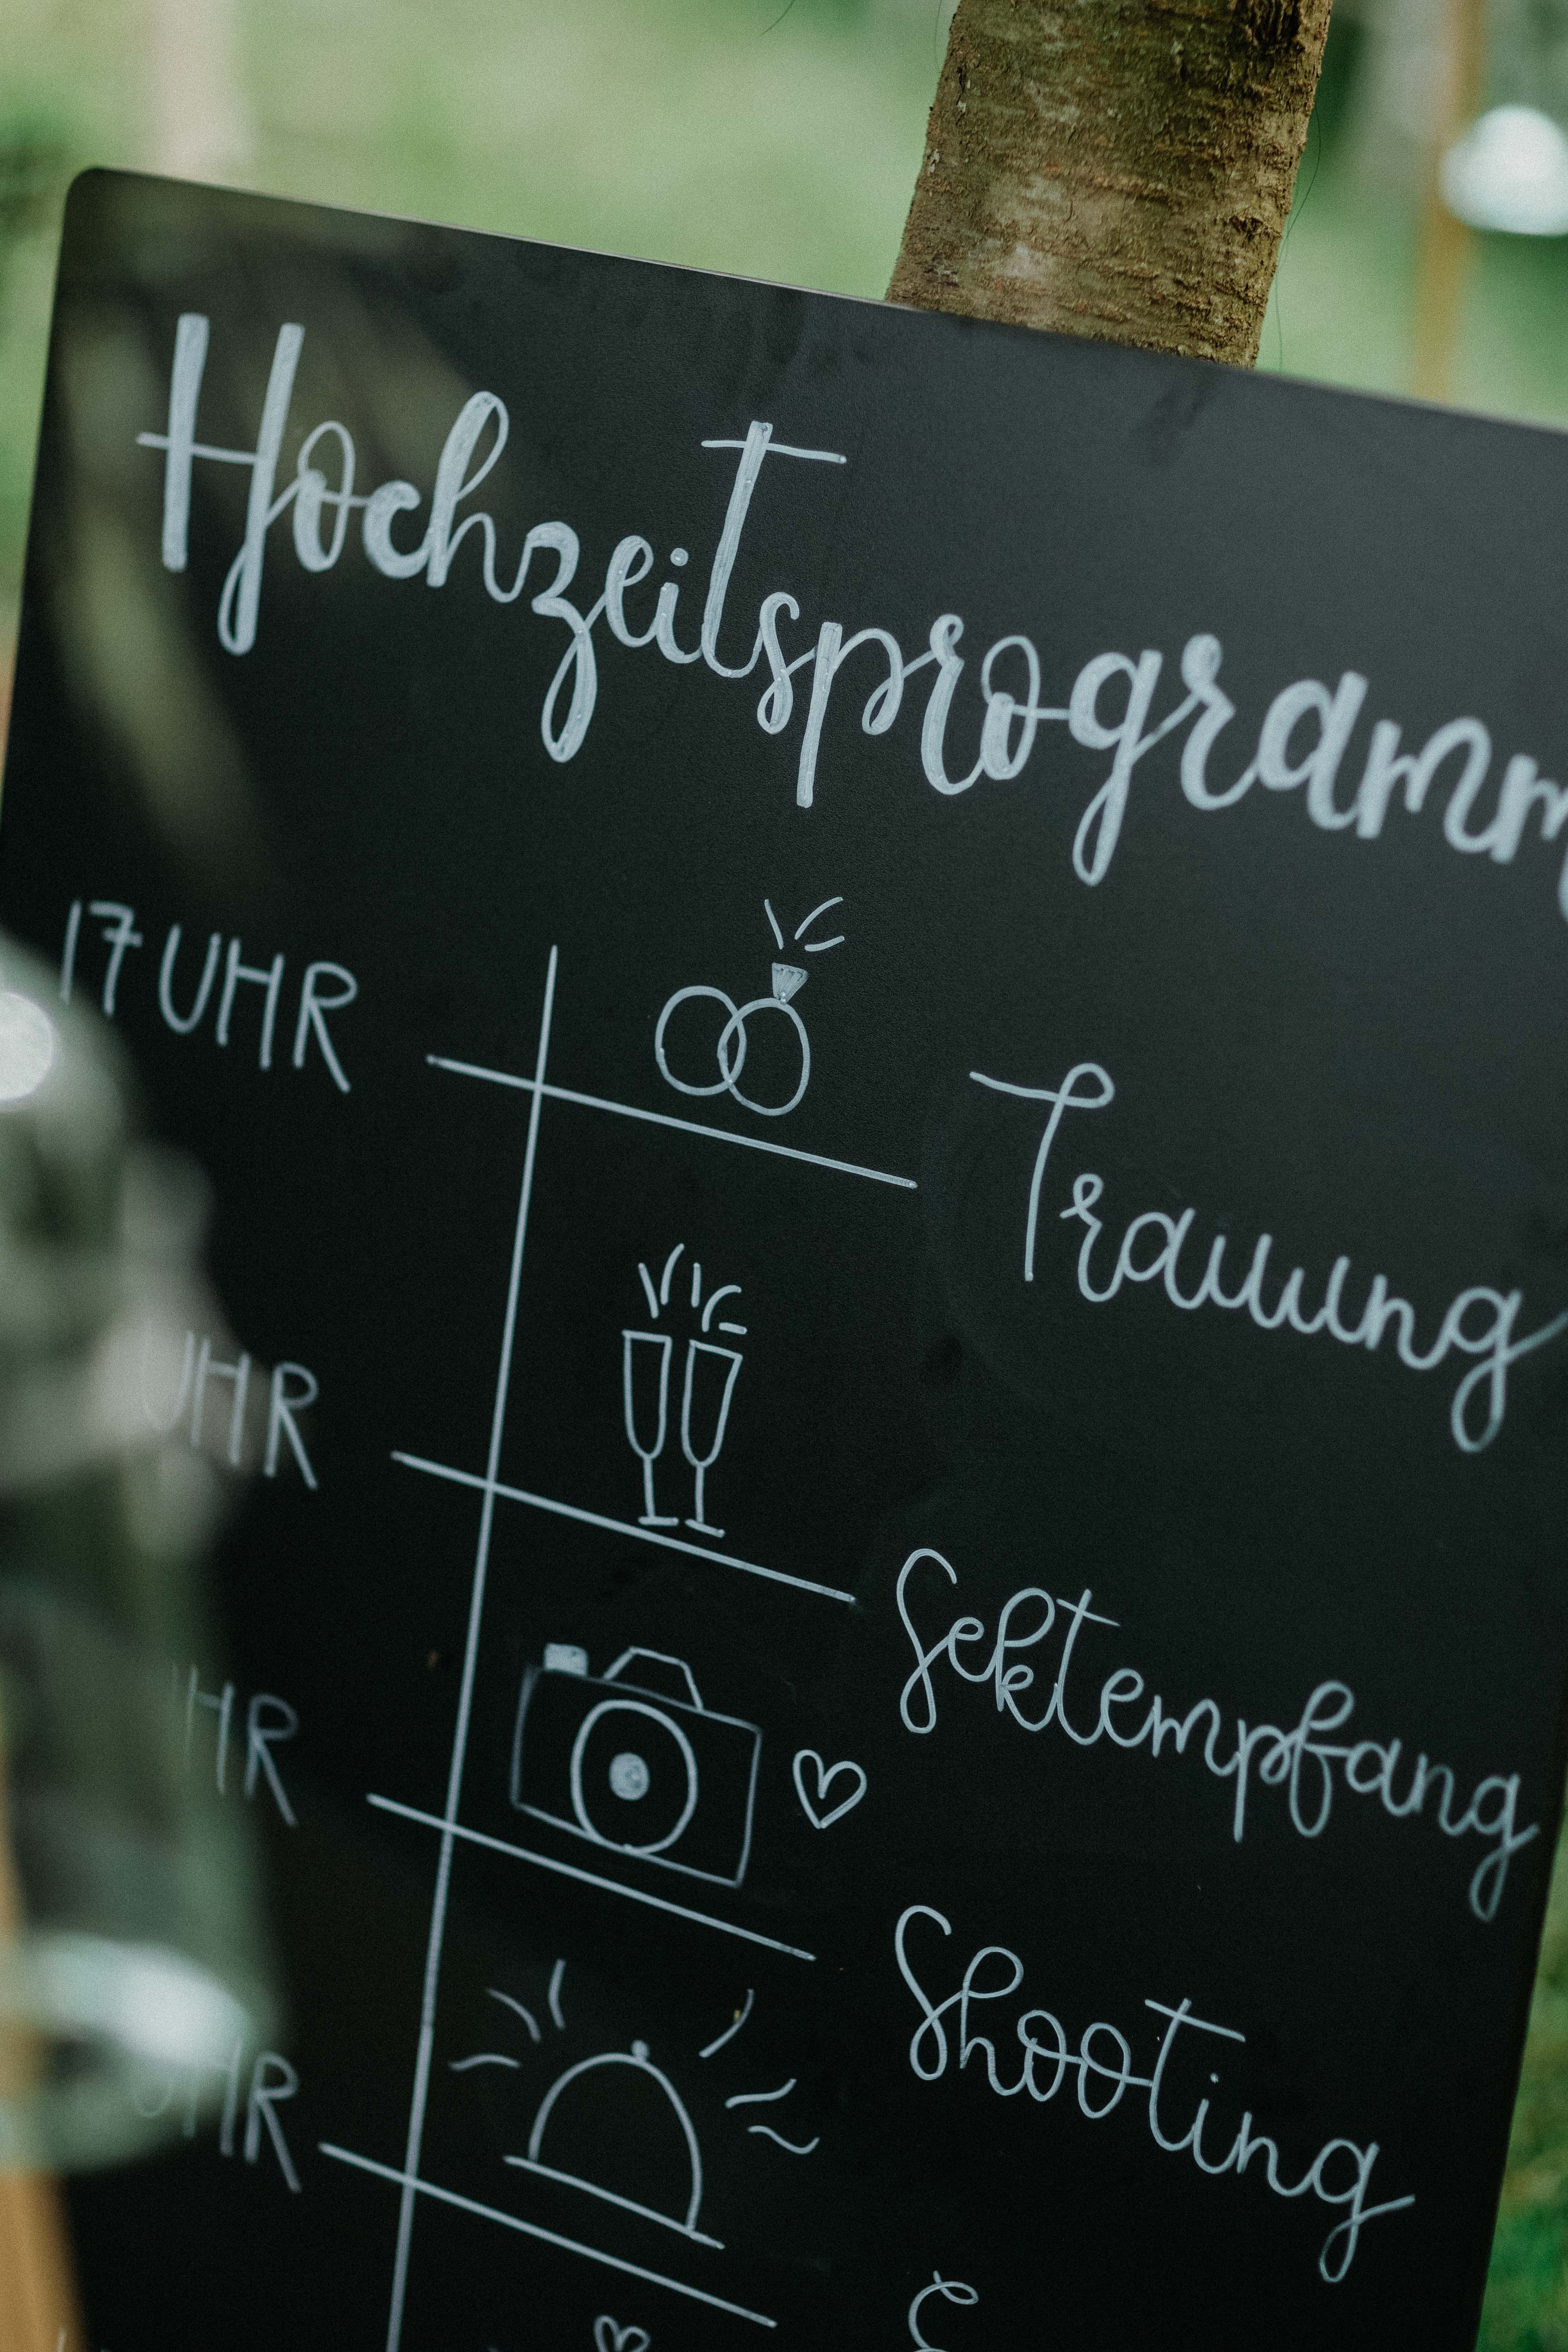 Hochzeitsprogramm
17 UHR
Trauung
UHR
Sektempfang
HR
Shooting
UHR